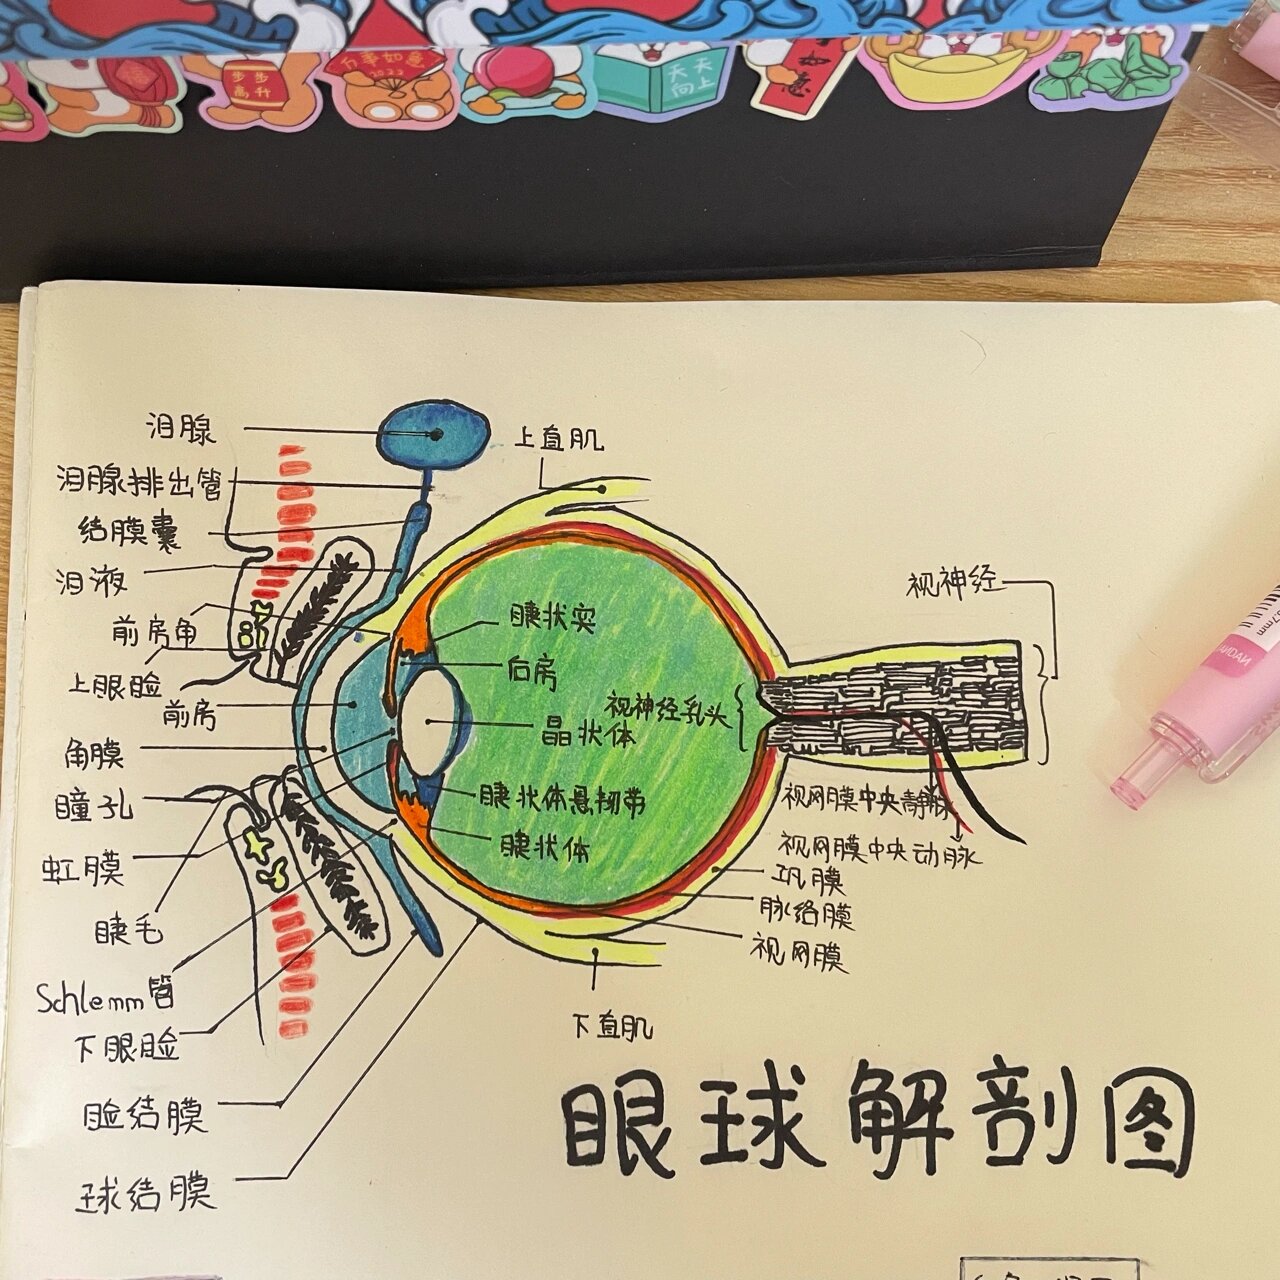 万事如意
2022
步步
高升
天天
向上
如意
泪腺
上直肌
泪腺排出管
结膜囊
泪液
视神经
前房角
睫状突
上眼睑
后房
前房
视神经乳头
晶状体
角膜
瞳孔
睫状体悬韧带
视网膜中央静脉
睫状体
视网膜中央动脉
虹膜
巩膜
脉络膜
睫毛
视网膜
Schlemm管
下直肌
下眼睑
睑结膜
球结膜
眼球解剖图
0.7mm